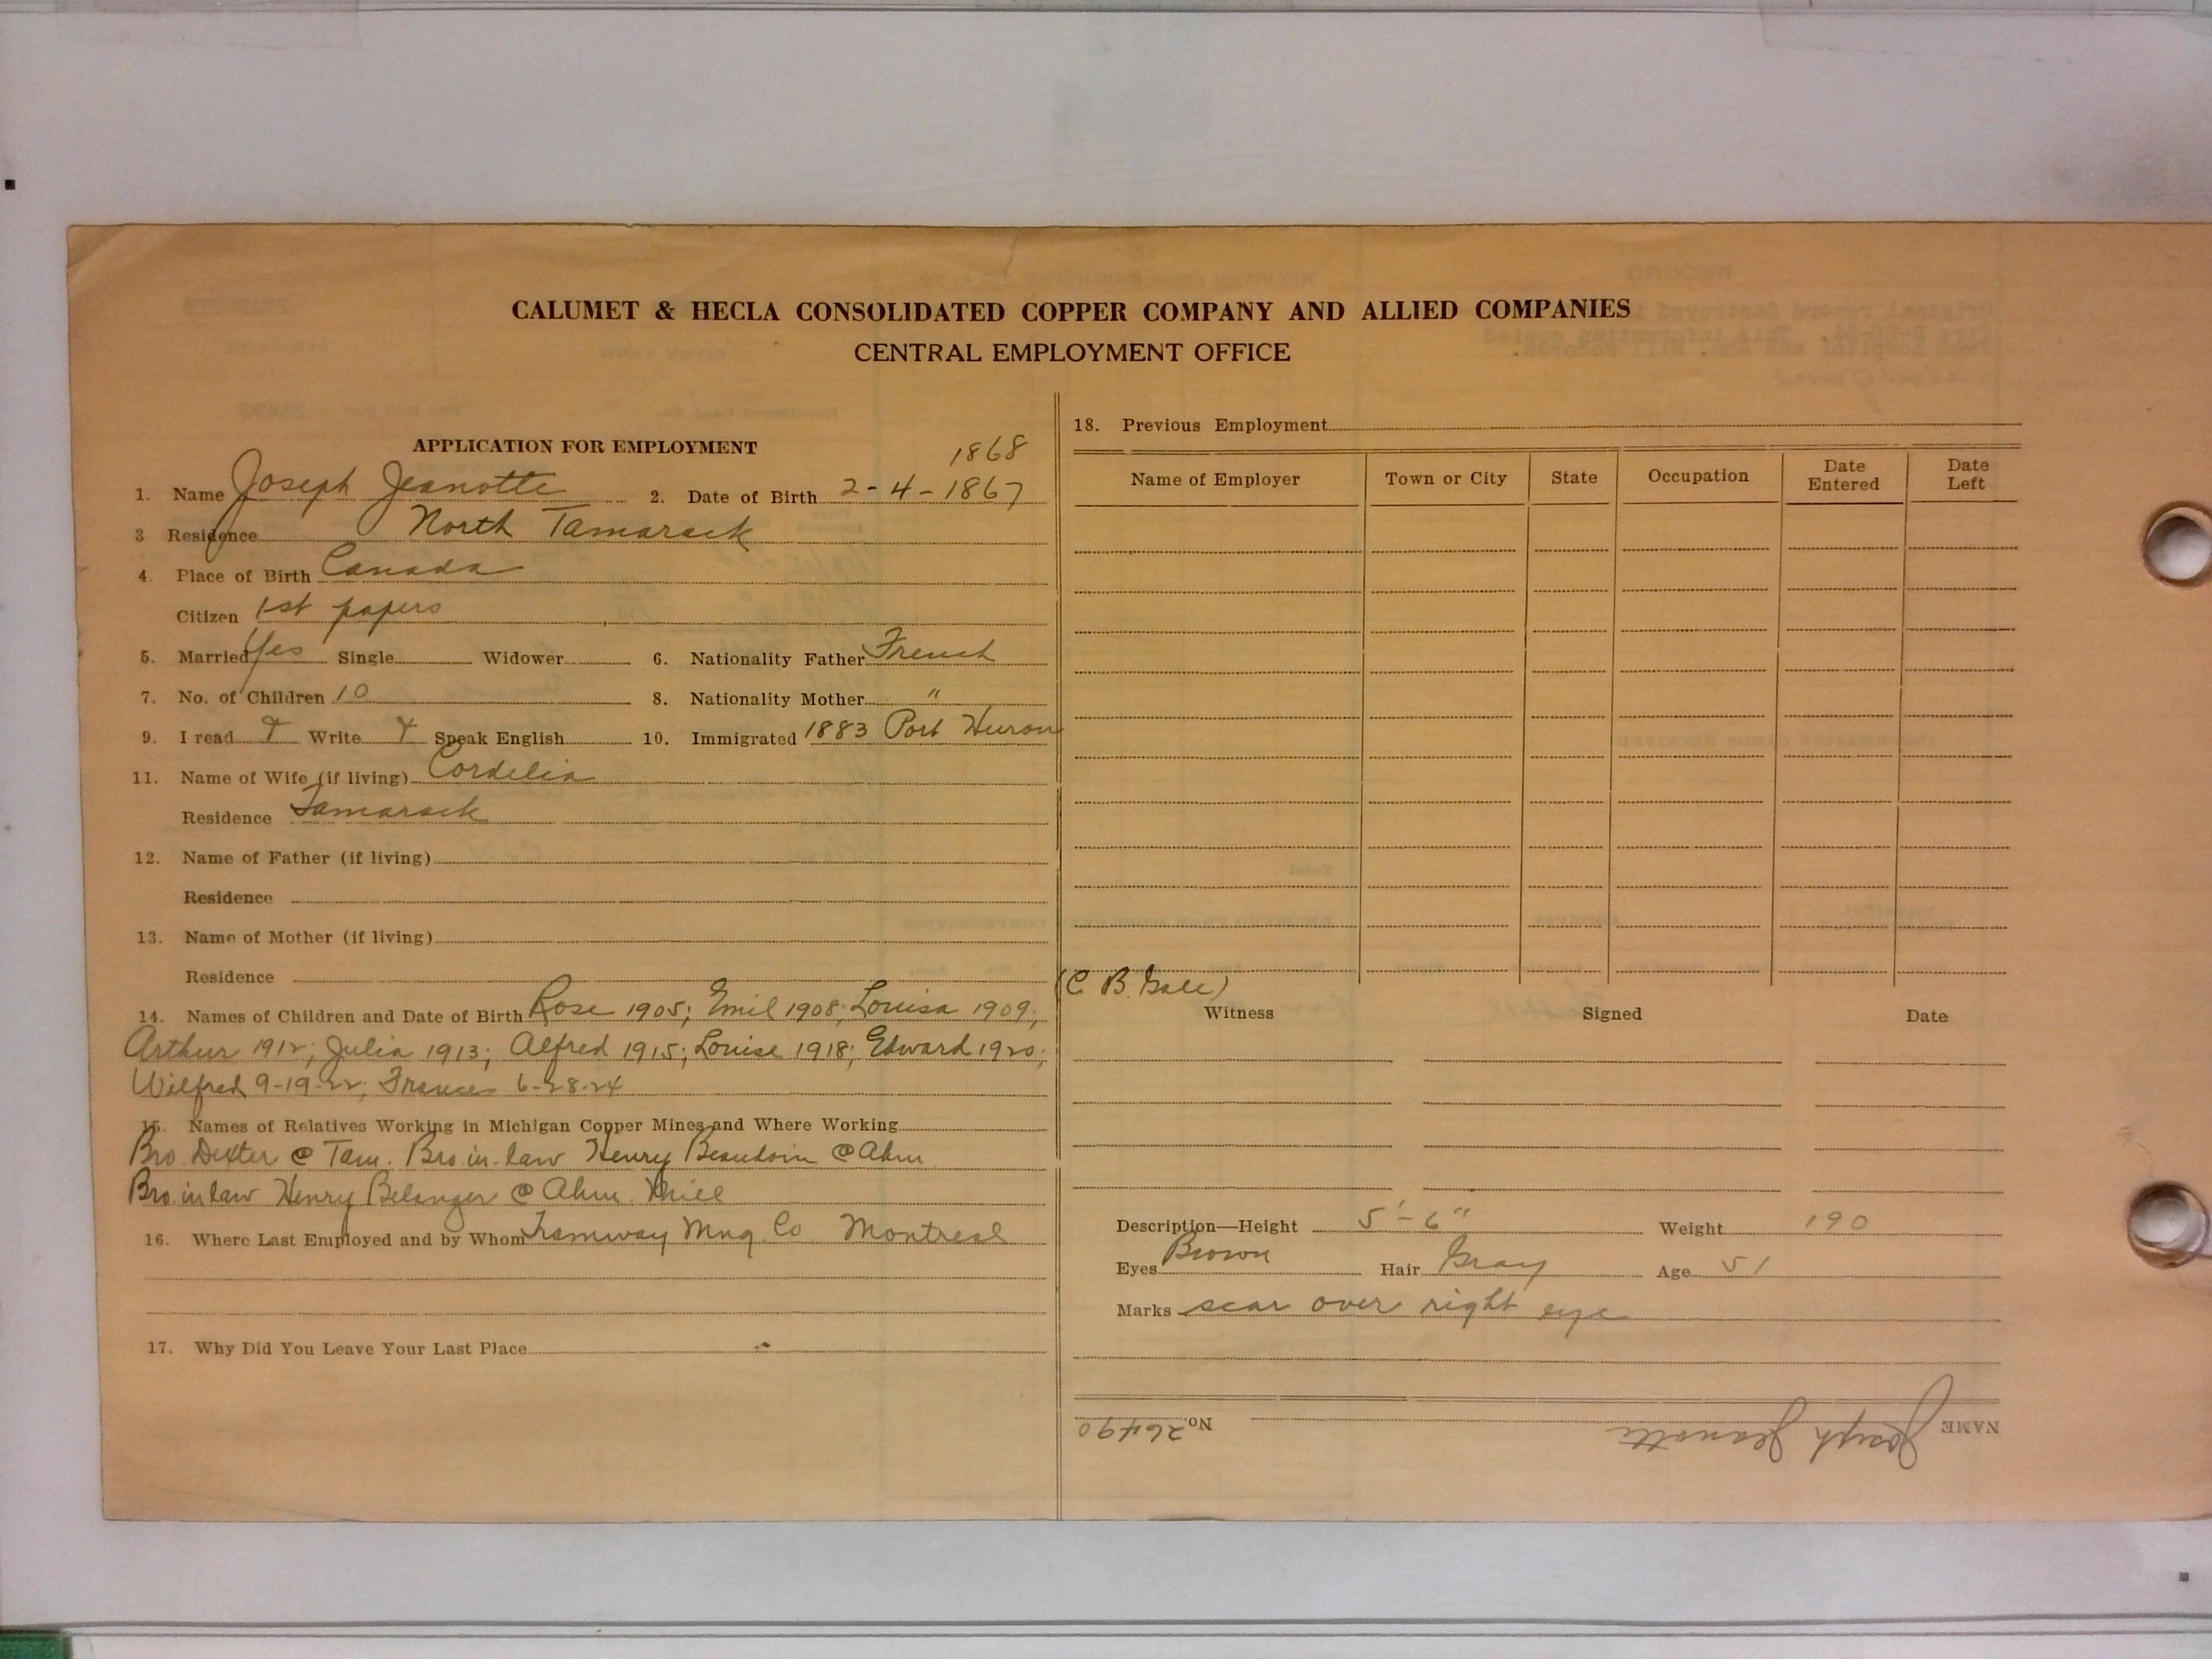 CALUMET & HECLA CONSOLIDATED COPPER COMPANY AND ALLIED COMPANIES
CENTRAL EMPLOYMENT OFFICE
APPLICATION FOR EMPLOYMENT
1868
1. Name Joseph Jeanotte 2. Date of Birth 2-4-1867
3 Residence North Tamarack
4. Place of Birth Canada
Citizen 1st papers
5. Married Yes Single Widower 6. Nationality Father French
7. No. of Children 10 8. Nationality Mother "
9. I read Write Speak English 10. Immigrated 1883 Port Huron
11. Name of Wife (if living) Cordelia
Residence Tamarack
12. Name of Father (if living)
Residence
13. Name of Mother (if living)
Residence
14. Names of Children and Date of Birth Rose 1905; Emil 1908; Louisa 1909;
Arthur 1912; Julia 1913; Alfred 1915; Louise 1918; Edward 1920;
Wilfred 9-19-22; Frances 6-28-24
15. Names of Relatives Working in Michigan Copper Mines and Where Working
Bro. Dexter @ Tam. Bro. in-law Henry Beaudoin @ Ahm
Bro. in law Henry Belanger @ Ahm. Mill
16. Where Last Employed and by Whom Tramway Mng. Co. Montreal
17. Why Did You Leave Your Last Place
18. Previous Employment
Name of Employer Town or City State Occupation Date Entered Date Left
(C B.
Witness Signed Date
Description—Height 5'-6" Weight 190
Eyes Brown Hair Gray Age 51
Marks scar over right eye
NAME Joseph Jeanotte No. 26490